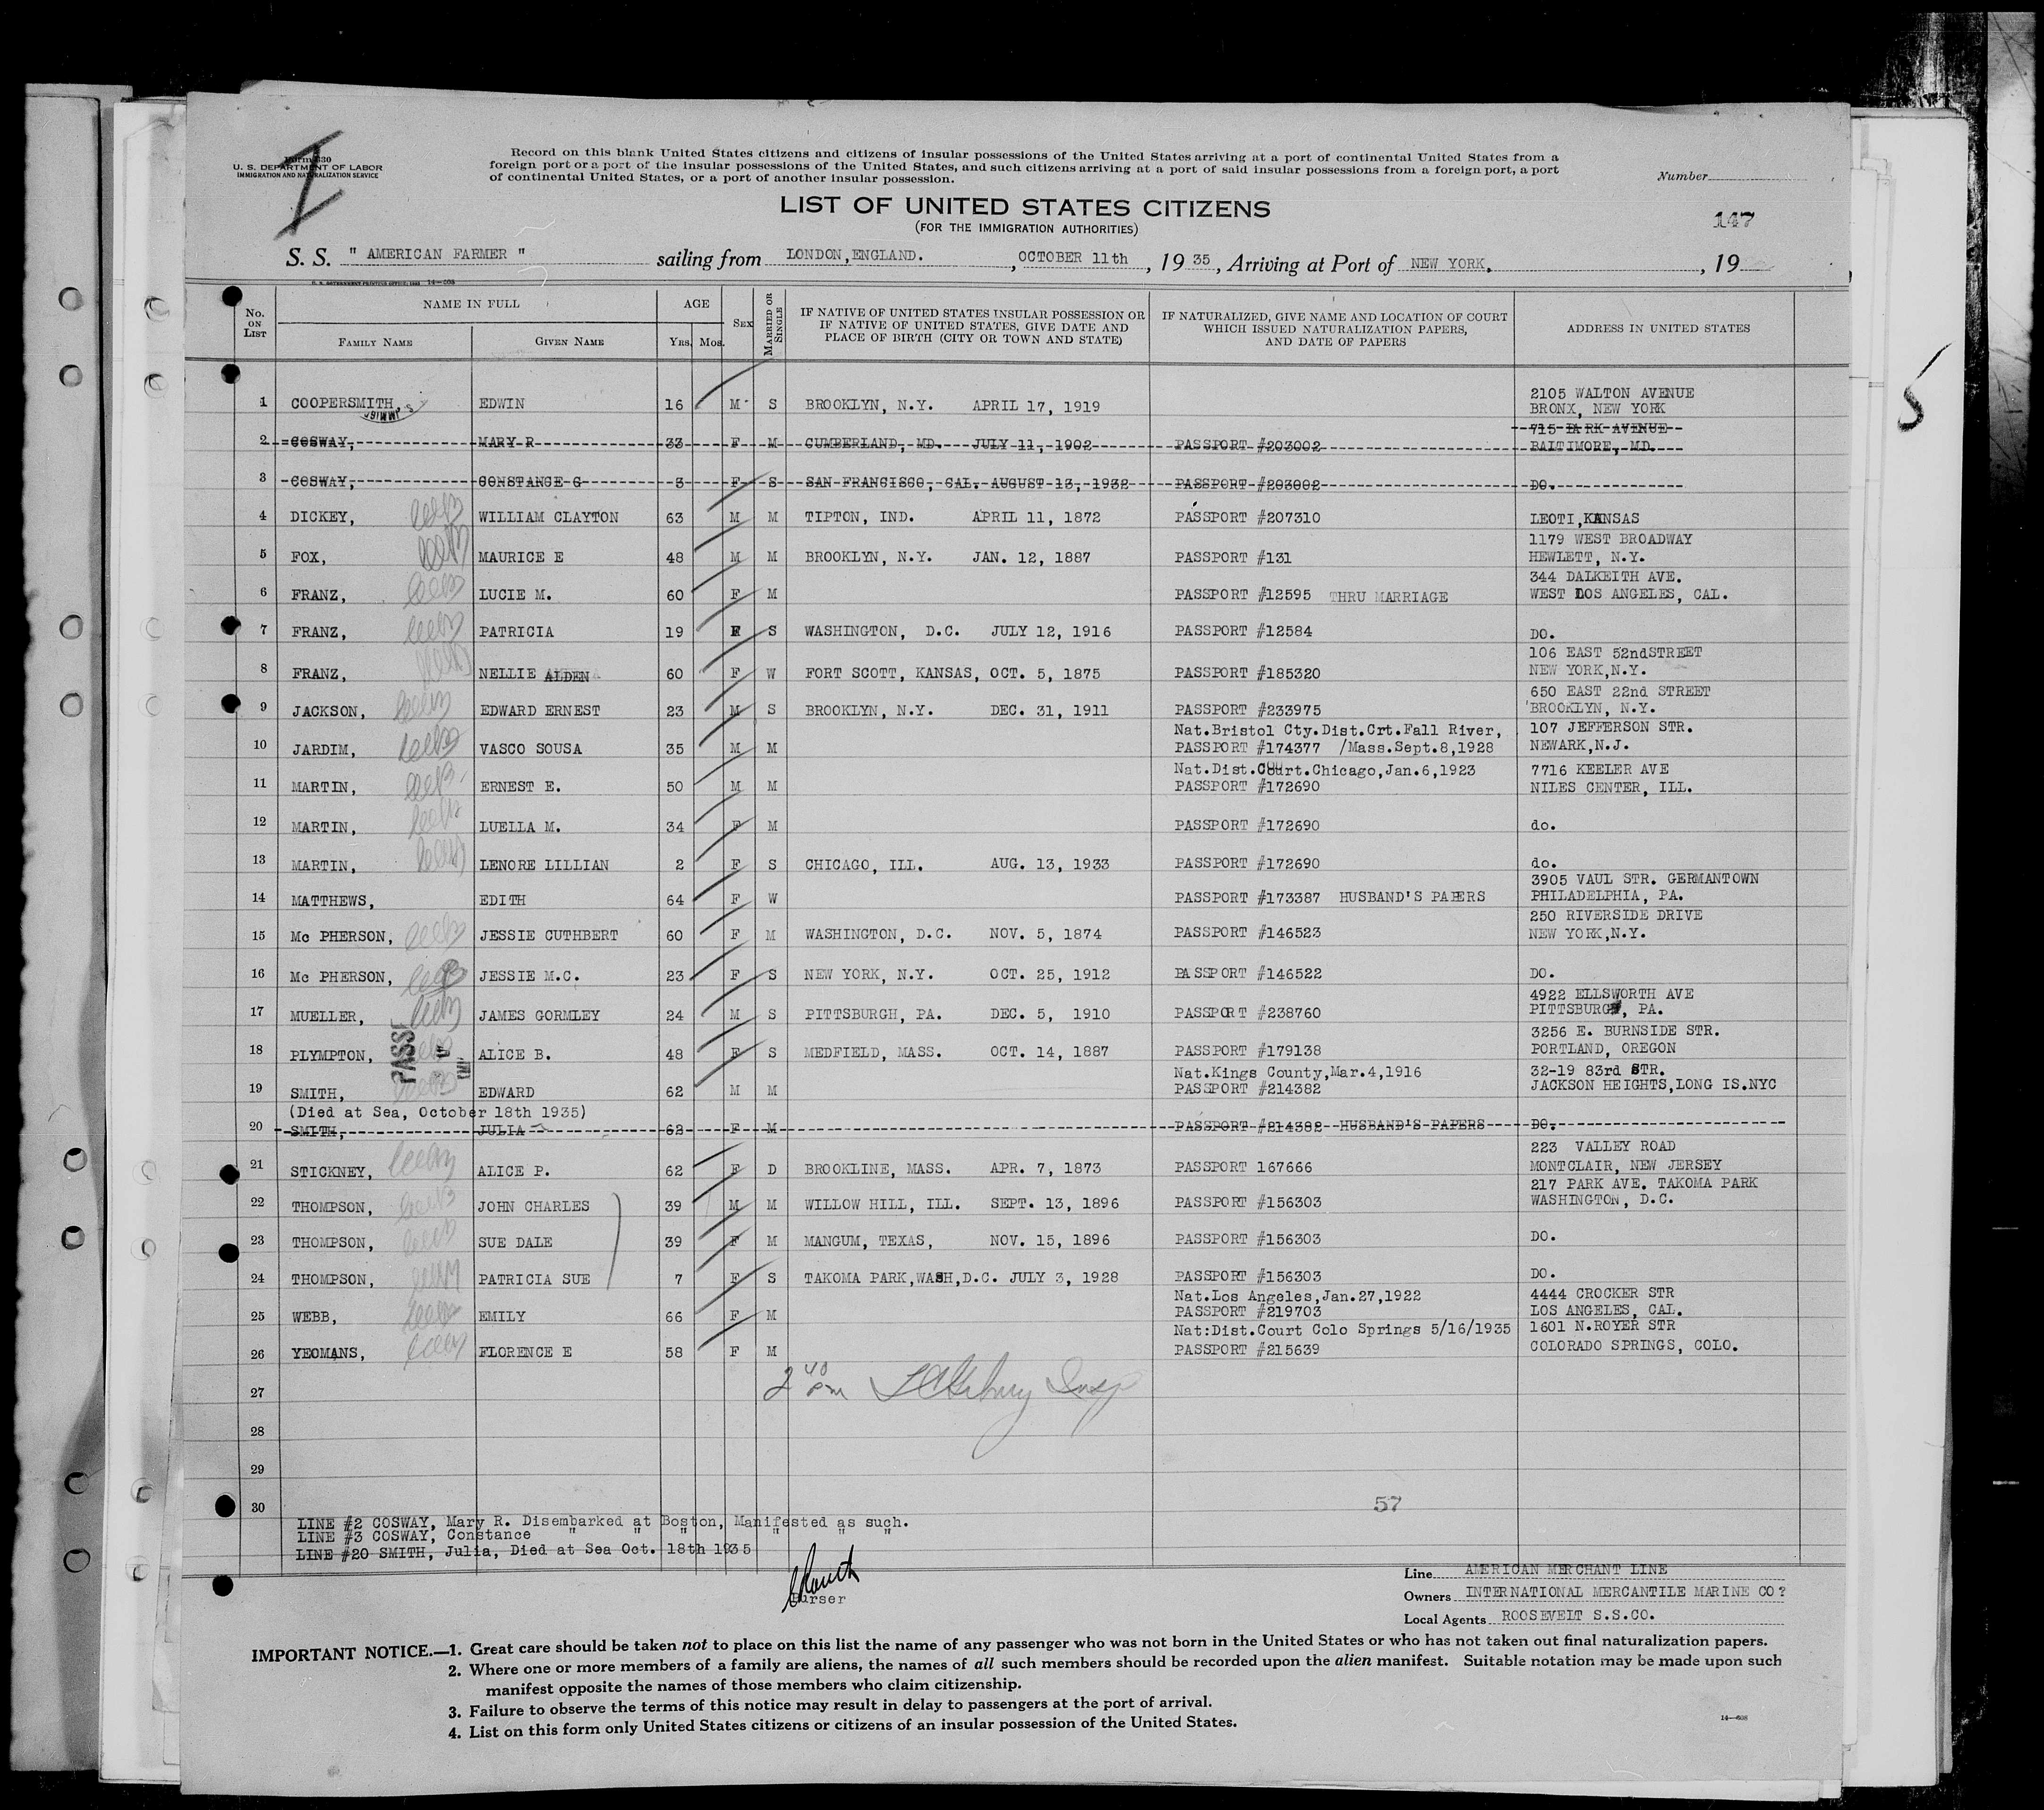 Form 630
U. S. DEPARTMENT OF LABOR
IMMIGRATION AND NATURALIZATION SERVICE
Record on this blank United States citizens and citizens of insular possessions of the United States arriving at a port of continental United States from a
foreign port or a port of the insular possessions of the United States, and such citizens arriving at a port of said insular possessions from a foreign port, a port
of continental United States, or a port of another insular possession.
Number
LIST OF UNITED STATES CITIZENS
(FOR THE IMMIGRATION AUTHORITIES)
147
S. S. " AMERICAN FARMER " sailing from LONDON,ENGLAND. , OCTOBER 11th , 19 35, Arriving at Port of NEW YORK, , 19
No. ON LIST
NAME IN FULL
FAMILY NAME
GIVEN NAME
AGE
YRS. MOS.
SEX
MARRIED OR SINGLE
IF NATIVE OF UNITED STATES INSULAR POSSESSION OR
IF NATIVE OF UNITED STATES, GIVE DATE AND
PLACE OF BIRTH (CITY OR TOWN AND STATE)
IF NATURALIZED, GIVE NAME AND LOCATION OF COURT
WHICH ISSUED NATURALIZATION PAPERS,
AND DATE OF PAPERS
ADDRESS IN UNITED STATES
2105 WALTON AVENUE
1 COOPERSMITH, EDWIN 16 M S BROOKLYN, N.Y. APRIL 17, 1919 BRONX, NEW YORK
715 PARK AVENUE
2 COSWAY, MARY R 33 F M CUMBERLAND, MD. JULY 11, 1902 PASSPORT #203002 BALTIMORE, MD.
3 COSWAY, CONSTANCE G 3 F S SAN FRANCISCO, CAL. AUGUST 13, 1932 PASSPORT #203002 DO.
4 DICKEY, WILLIAM CLAYTON 63 M M TIPTON, IND. APRIL 11, 1872 PASSPORT #207310 LEOTI,KANSAS
1179 WEST BROADWAY
5 FOX, MAURICE E 48 M M BROOKLYN, N.Y. JAN. 12, 1887 PASSPORT #131 HEWLETT, N.Y.
344 DALKEITH AVE.
6 FRANZ, LUCIE M. 60 F M PASSPORT #12595 THRU MARRIAGE WEST LOS ANGELES, CAL.
7 FRANZ, PATRICIA 19 F S WASHINGTON, D.C. JULY 12, 1916 PASSPORT #12584 DO.
106 EAST 52ndSTREET
8 FRANZ, NELLIE ALDEN 60 F W FORT SCOTT, KANSAS, OCT. 5, 1875 PASSPORT #185320 NEW YORK,N.Y.
650 EAST 22nd STREET
9 JACKSON, EDWARD ERNEST 23 M S BROOKLYN, N.Y. DEC. 31, 1911 PASSPORT #233975 BROOKLYN, N.Y.
Nat.Bristol Cty.Dist.Crt.Fall River, 107 JEFFERSON STR.
10 JARDIM, VASCO SOUSA 35 M M PASSPORT #174377 /Mass.Sept.8,1928 NEWARK,N.J.
Nat.Dist.Court.Chicago,Jan.6,1923 7716 KEELER AVE
11 MARTIN, ERNEST E. 50 M M PASSPORT #172690 NILES CENTER, ILL.
12 MARTIN, LUELLA M. 34 F M PASSPORT #172690 do.
13 MARTIN, LENORE LILLIAN 2 F S CHICAGO, ILL. AUG. 13, 1933 PASSPORT #172690 do.
3905 VAUL STR. GERMANTOWN
14 MATTHEWS, EDITH 64 F W PASSPORT #173387 HUSBAND'S PAPERS PHILADELPHIA, PA.
250 RIVERSIDE DRIVE
15 Mc PHERSON, JESSIE CUTHBERT 60 F M WASHINGTON, D.C. NOV. 5, 1874 PASSPORT #146523 NEW YORK,N.Y.
16 Mc PHERSON, JESSIE M.C. 23 F S NEW YORK, N.Y. OCT. 25, 1912 PASSPORT #146522 DO.
4922 ELLSWORTH AVE
17 MUELLER, JAMES GORMLEY 24 M S PITTSBURGH, PA. DEC. 5, 1910 PASSPORT #238760 PITTSBURGH, PA.
3256 E. BURNSIDE STR.
18 PLYMPTON, ALICE B. 48 F S MEDFIELD, MASS. OCT. 14, 1887 PASSPORT #179138 PORTLAND, OREGON
Nat.Kings County,Mar.4,1916 32-19 83rd STR.
19 SMITH, EDWARD 62 M M PASSPORT #214382 JACKSON HEIGHTS,LONG IS.NYC
(Died at Sea, October 18th 1935)
20 SMITH, JULIA 62 F M PASSPORT #214382 HUSBAND'S PAPERS DO.
223 VALLEY ROAD
21 STICKNEY, ALICE P. 62 F D BROOKLINE, MASS. APR. 7, 1873 PASSPORT 167666 MONTCLAIR, NEW JERSEY
217 PARK AVE. TAKOMA PARK
22 THOMPSON, JOHN CHARLES 39 M M WILLOW HILL, ILL. SEPT. 13, 1896 PASSPORT #156303 WASHINGTON, D.C.
23 THOMPSON, SUE DALE 39 F M MANGUM, TEXAS, NOV. 15, 1896 PASSPORT #156303 DO.
24 THOMPSON, PATRICIA SUE 7 F S TAKOMA PARK,WASH,D.C. JULY 3, 1928 PASSPORT #156303 DO.
Nat.Los Angeles,Jan.27,1922 4444 CROCKER STR
25 WEBB, EMILY 66 F M PASSPORT #219703 LOS ANGELES, CAL.
Nat:Dist.Court Colo Springs 5/16/1935 1601 N.ROYER STR
26 YEOMANS, FLORENCE E 58 F M PASSPORT #215639 COLORADO SPRINGS, COLO.
27 2 40 pm
28
29
30 57
LINE #2 COSWAY, Mary R. Disembarked at Boston, Manifested as such.
LINE #3 COSWAY, Constance " " " " " "
LINE #20 SMITH, Julia, Died at Sea Oct. 18th 1935
Purser
Line AMERICAN MERCHANT LINE
Owners INTERNATIONAL MERCANTILE MARINE CO?
Local Agents ROOSEVELT S.S.CO.
IMPORTANT NOTICE.—1. Great care should be taken not to place on this list the name of any passenger who was not born in the United States or who has not taken out final naturalization papers.
2. Where one or more members of a family are aliens, the names of all such members should be recorded upon the alien manifest. Suitable notation may be made upon such
manifest opposite the names of those members who claim citizenship.
3. Failure to observe the terms of this notice may result in delay to passengers at the port of arrival.
4. List on this form only United States citizens or citizens of an insular possession of the United States.
14—608
5